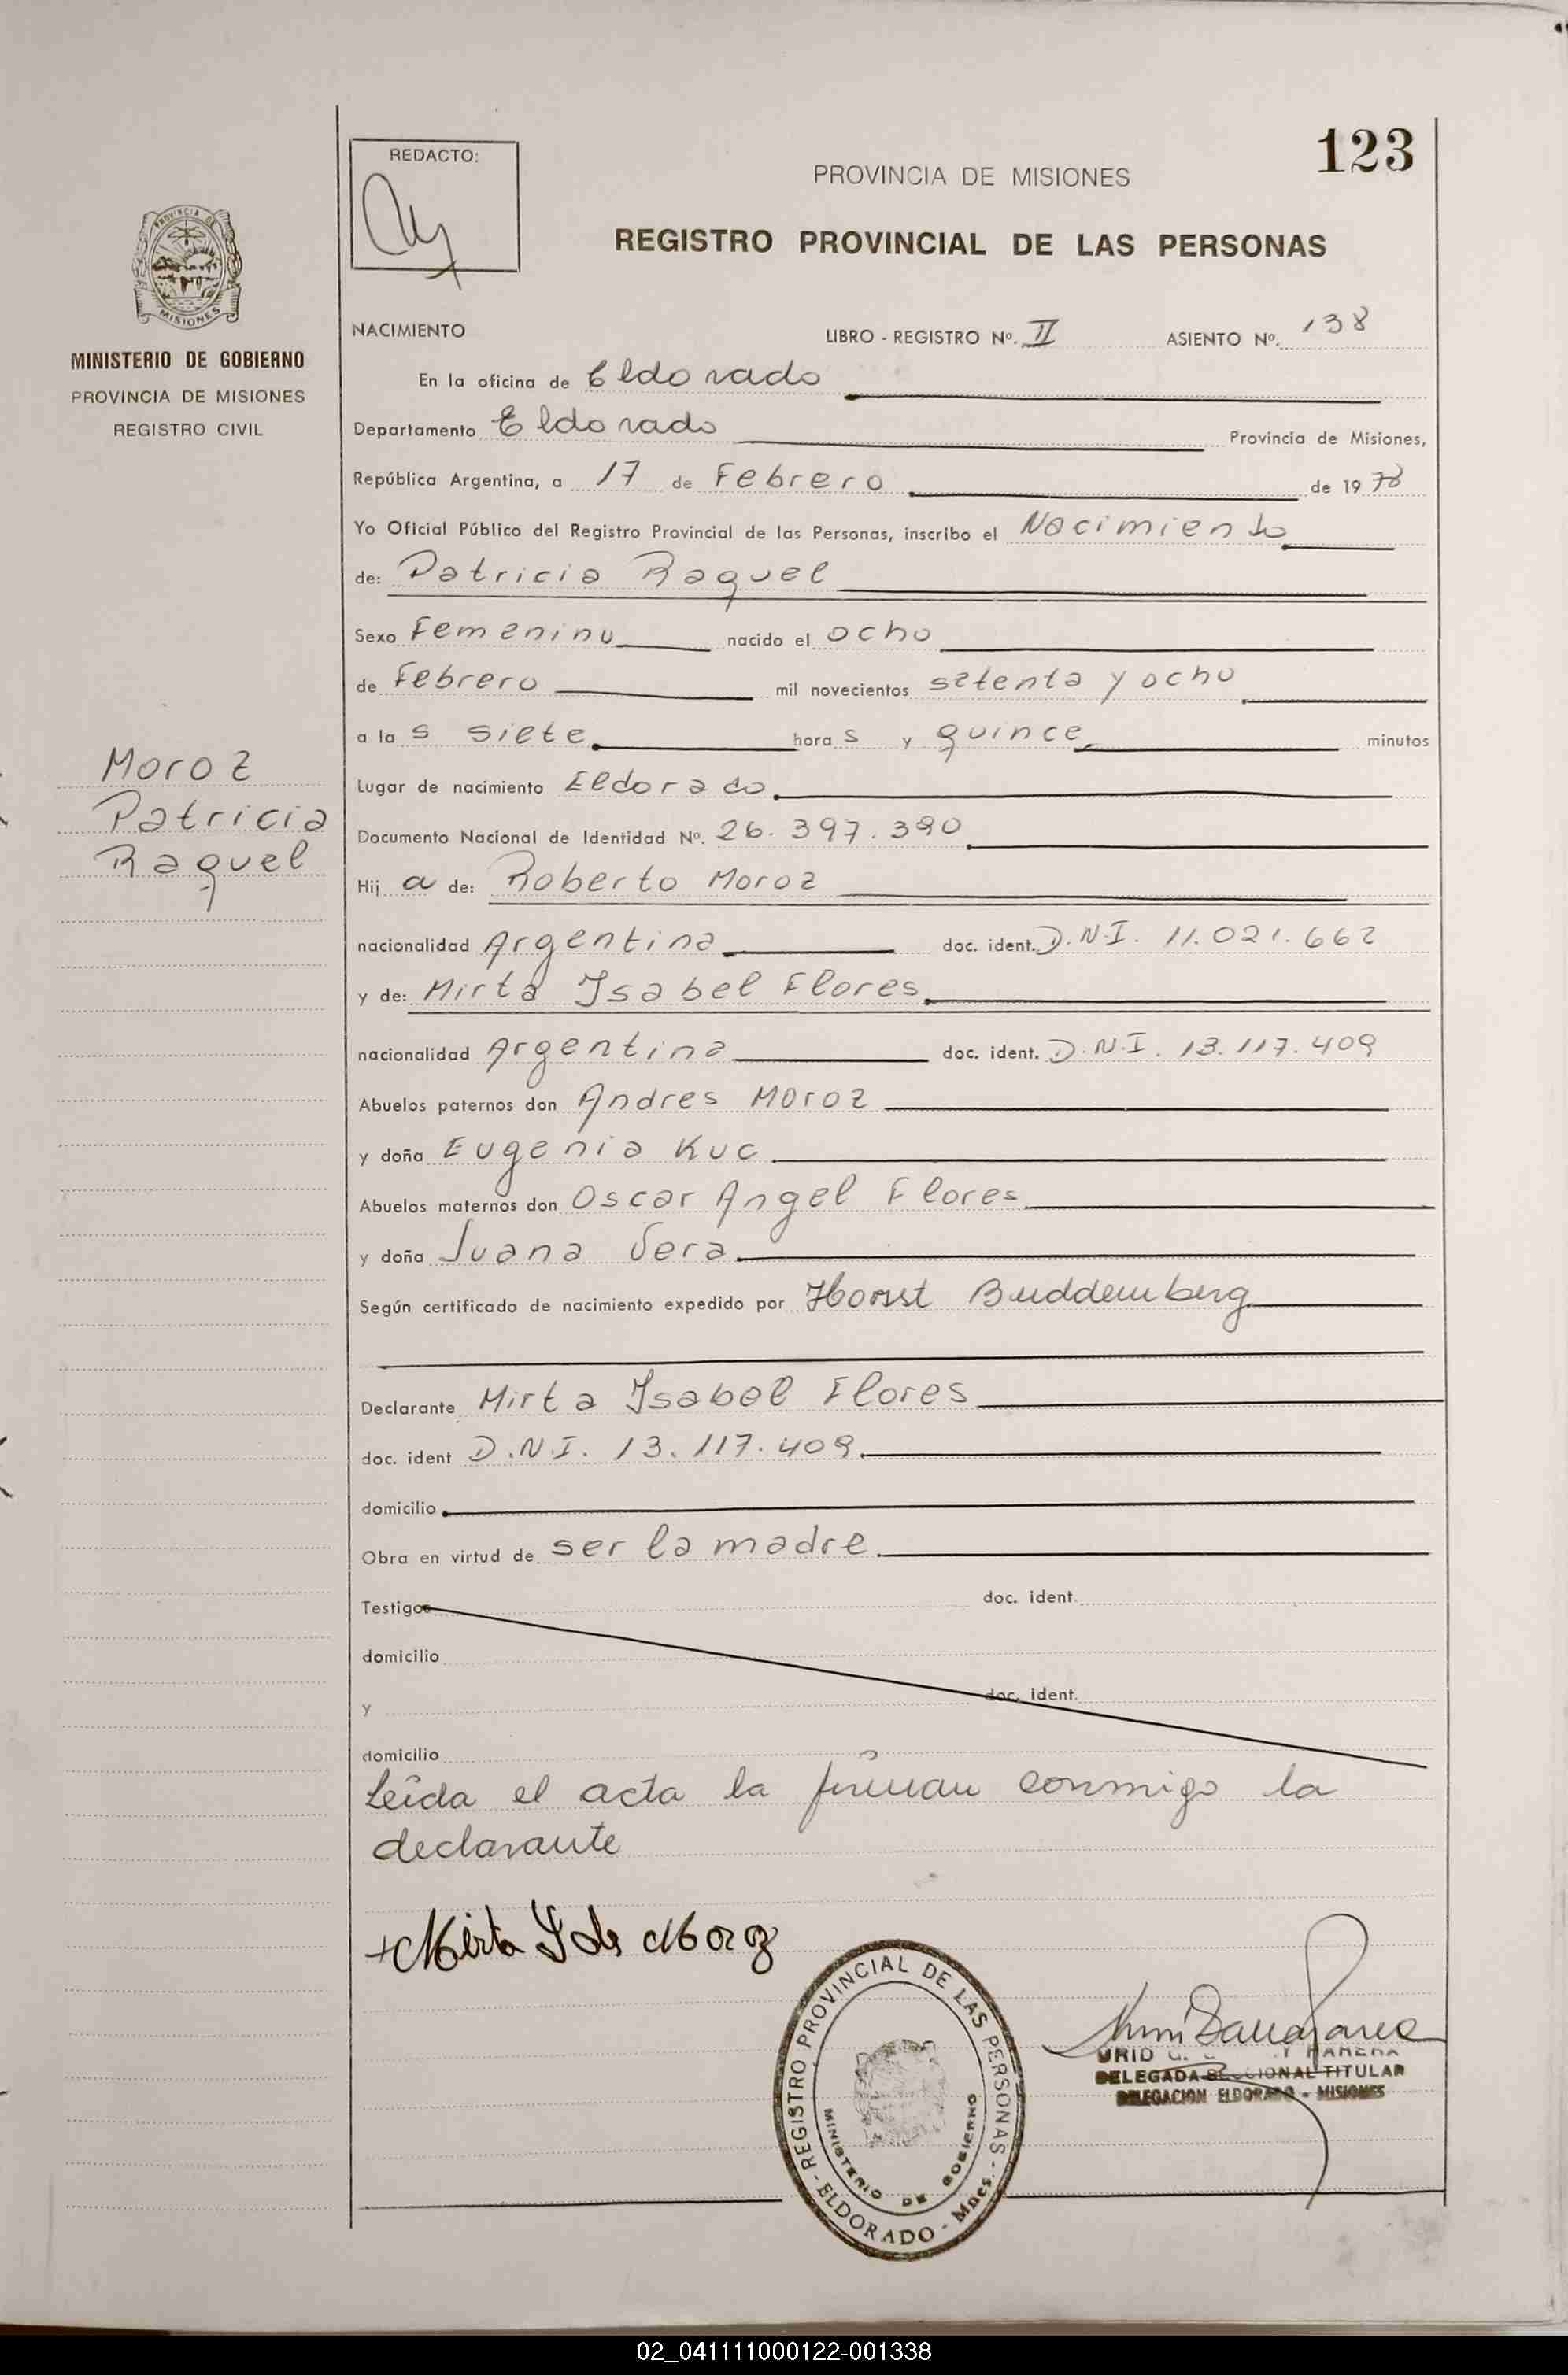 REDACTO:
123
PROVINCIA DE MISIONES
REGISTRO PROVINCIAL DE LAS PERSONAS
PROVINCIA DE
MISIONES
MINISTERIO DE GOBIERNO
PROVINCIA DE MISIONES
REGISTRO CIVIL
NACIMIENTO LIBRO - REGISTRO Nº. II ASIENTO Nº. 138
En la oficina de Eldorado
Departamento Eldorado Provincia de Misiones,
República Argentina, a 17 de Febrero de 1978
Yo Oficial Público del Registro Provincial de las Personas, inscribo el Nacimiento
de: Patricia Raquel
Sexo Femenino nacido el ocho
de Febrero mil novecientos setenta y ocho
a las siete horas y quince minutos
Moroz
Patricia
Raquel
Lugar de nacimiento Eldorado
Documento Nacional de Identidad Nº. 26.397.390
Hija de: Roberto Moroz
nacionalidad Argentina doc. ident. D.N.I. 11.021.662
y de: Mirta Isabel Flores
nacionalidad Argentina doc. ident. D.N.I. 13.117.409
Abuelos paternos don Andres Moroz
y doña Eugenia Kuc
Abuelos maternos don Oscar Angel Flores
y doña Juana Vera
Según certificado de nacimiento expedido por Horst Buddemberg
Declarante Mirta Isabel Flores
doc. ident D.N.I. 13.117.409
domicilio
Obra en virtud de ser la madre
Testigos doc. ident.
domicilio
y doc. ident.
domicilio
Leída el acta la firman conmigo la
declarante
Mirta I de Moroz
REGISTRO PROVINCIAL DE LAS PERSONAS - ELDORADO - Mnes.
MINISTERIO DE GOBIERNO
DELEGADA SECCIONAL TITULAR
DELEGACION ELDORADO - MISIONES
02_041111000122-001338